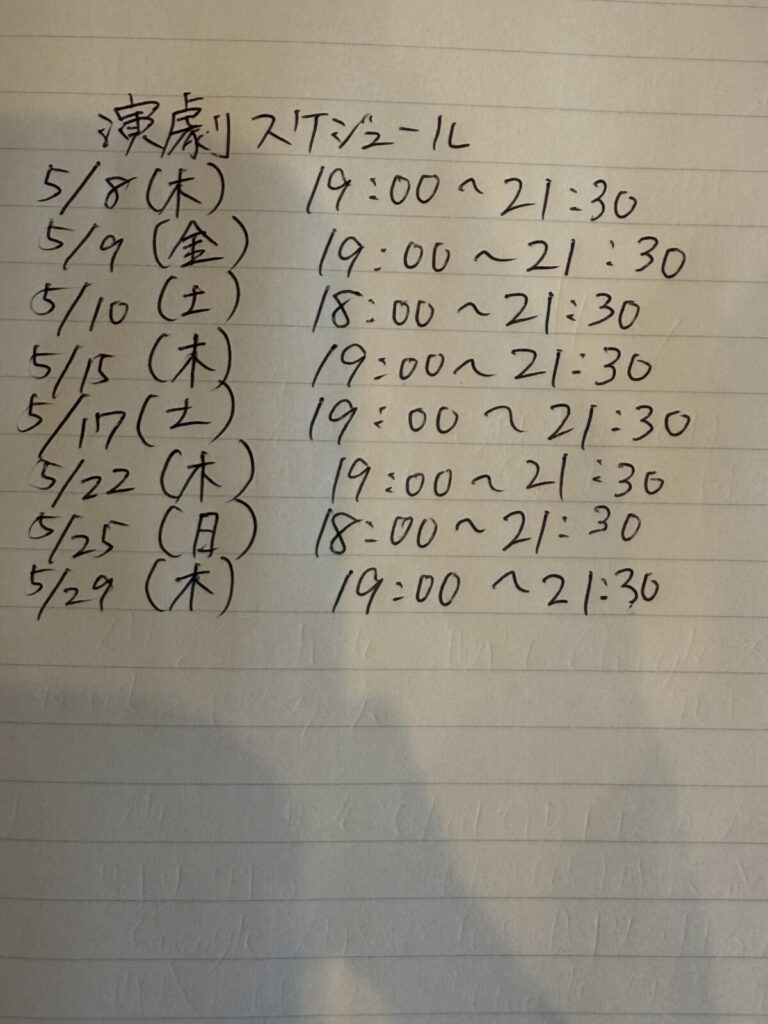 演劇スケジュール
5/8(木) 19:00～21:30
5/9(金) 19:00～21:30
5/10(土) 18:00～21:30
5/15(木) 19:00～21:30
5/17(土) 19:00～21:30
5/22(木) 19:00～21:30
5/25(日) 18:00～21:30
5/29(木) 19:00～21:30